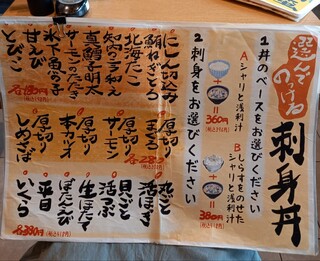 選んで
のっける
刺身丼
1 丼のベースをお選びください
A シャリと浅利汁
= 360円
B しらすをのせた
シャリと浅利汁
= 380円
2 刺身をお選びください
にしん切込み
鮪ねぎとろ
北海だこ
真鱈子明太
サーモンのたたき
氷下魚の子
甘えび
とびこ
各180円
厚切り
まぐろ
厚切り
サーモン
厚切り
本カツオ
厚切り
しめさば
各280円
丸ごと
活ほっき
貝ごと
活つぶ
生ほたて
ぼたんえび
平目
いくら
各380円